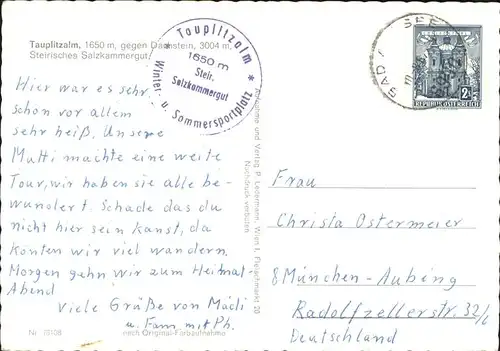 Tauplitzalm, 1650 m, gegen Dachstein, 3004 m,
Steirisches Salzkammergut
* Tauplitzalm *
1650 m
Steir.
Salzkammergut
Winter- u. Sommersportplatz
BAD
SEE
REPUBLIK ÖSTERREICH
Hier war es sehr
schön vor allem
sehr heiß. Unsere
Mutti machte eine weite
Tour, wir haben sie alle be-
wundert. Schade das du
nicht hier sein kanst, da
könten wir viel wandern.
Morgen gehn wir zum Heimat-
Abend
Viele Grüße von Mädi
u. Fam. mit Ph.
Aufnahme und Verlag P. Ledermann, Wien I, Fleischmarkt 20
Nachdruck verboten
Frau
Christa Ostermeier
8 München-Aubing
Radolfzellerstr. 32/c
Deutschland
Nr.
nach Original-Farbaufnahme